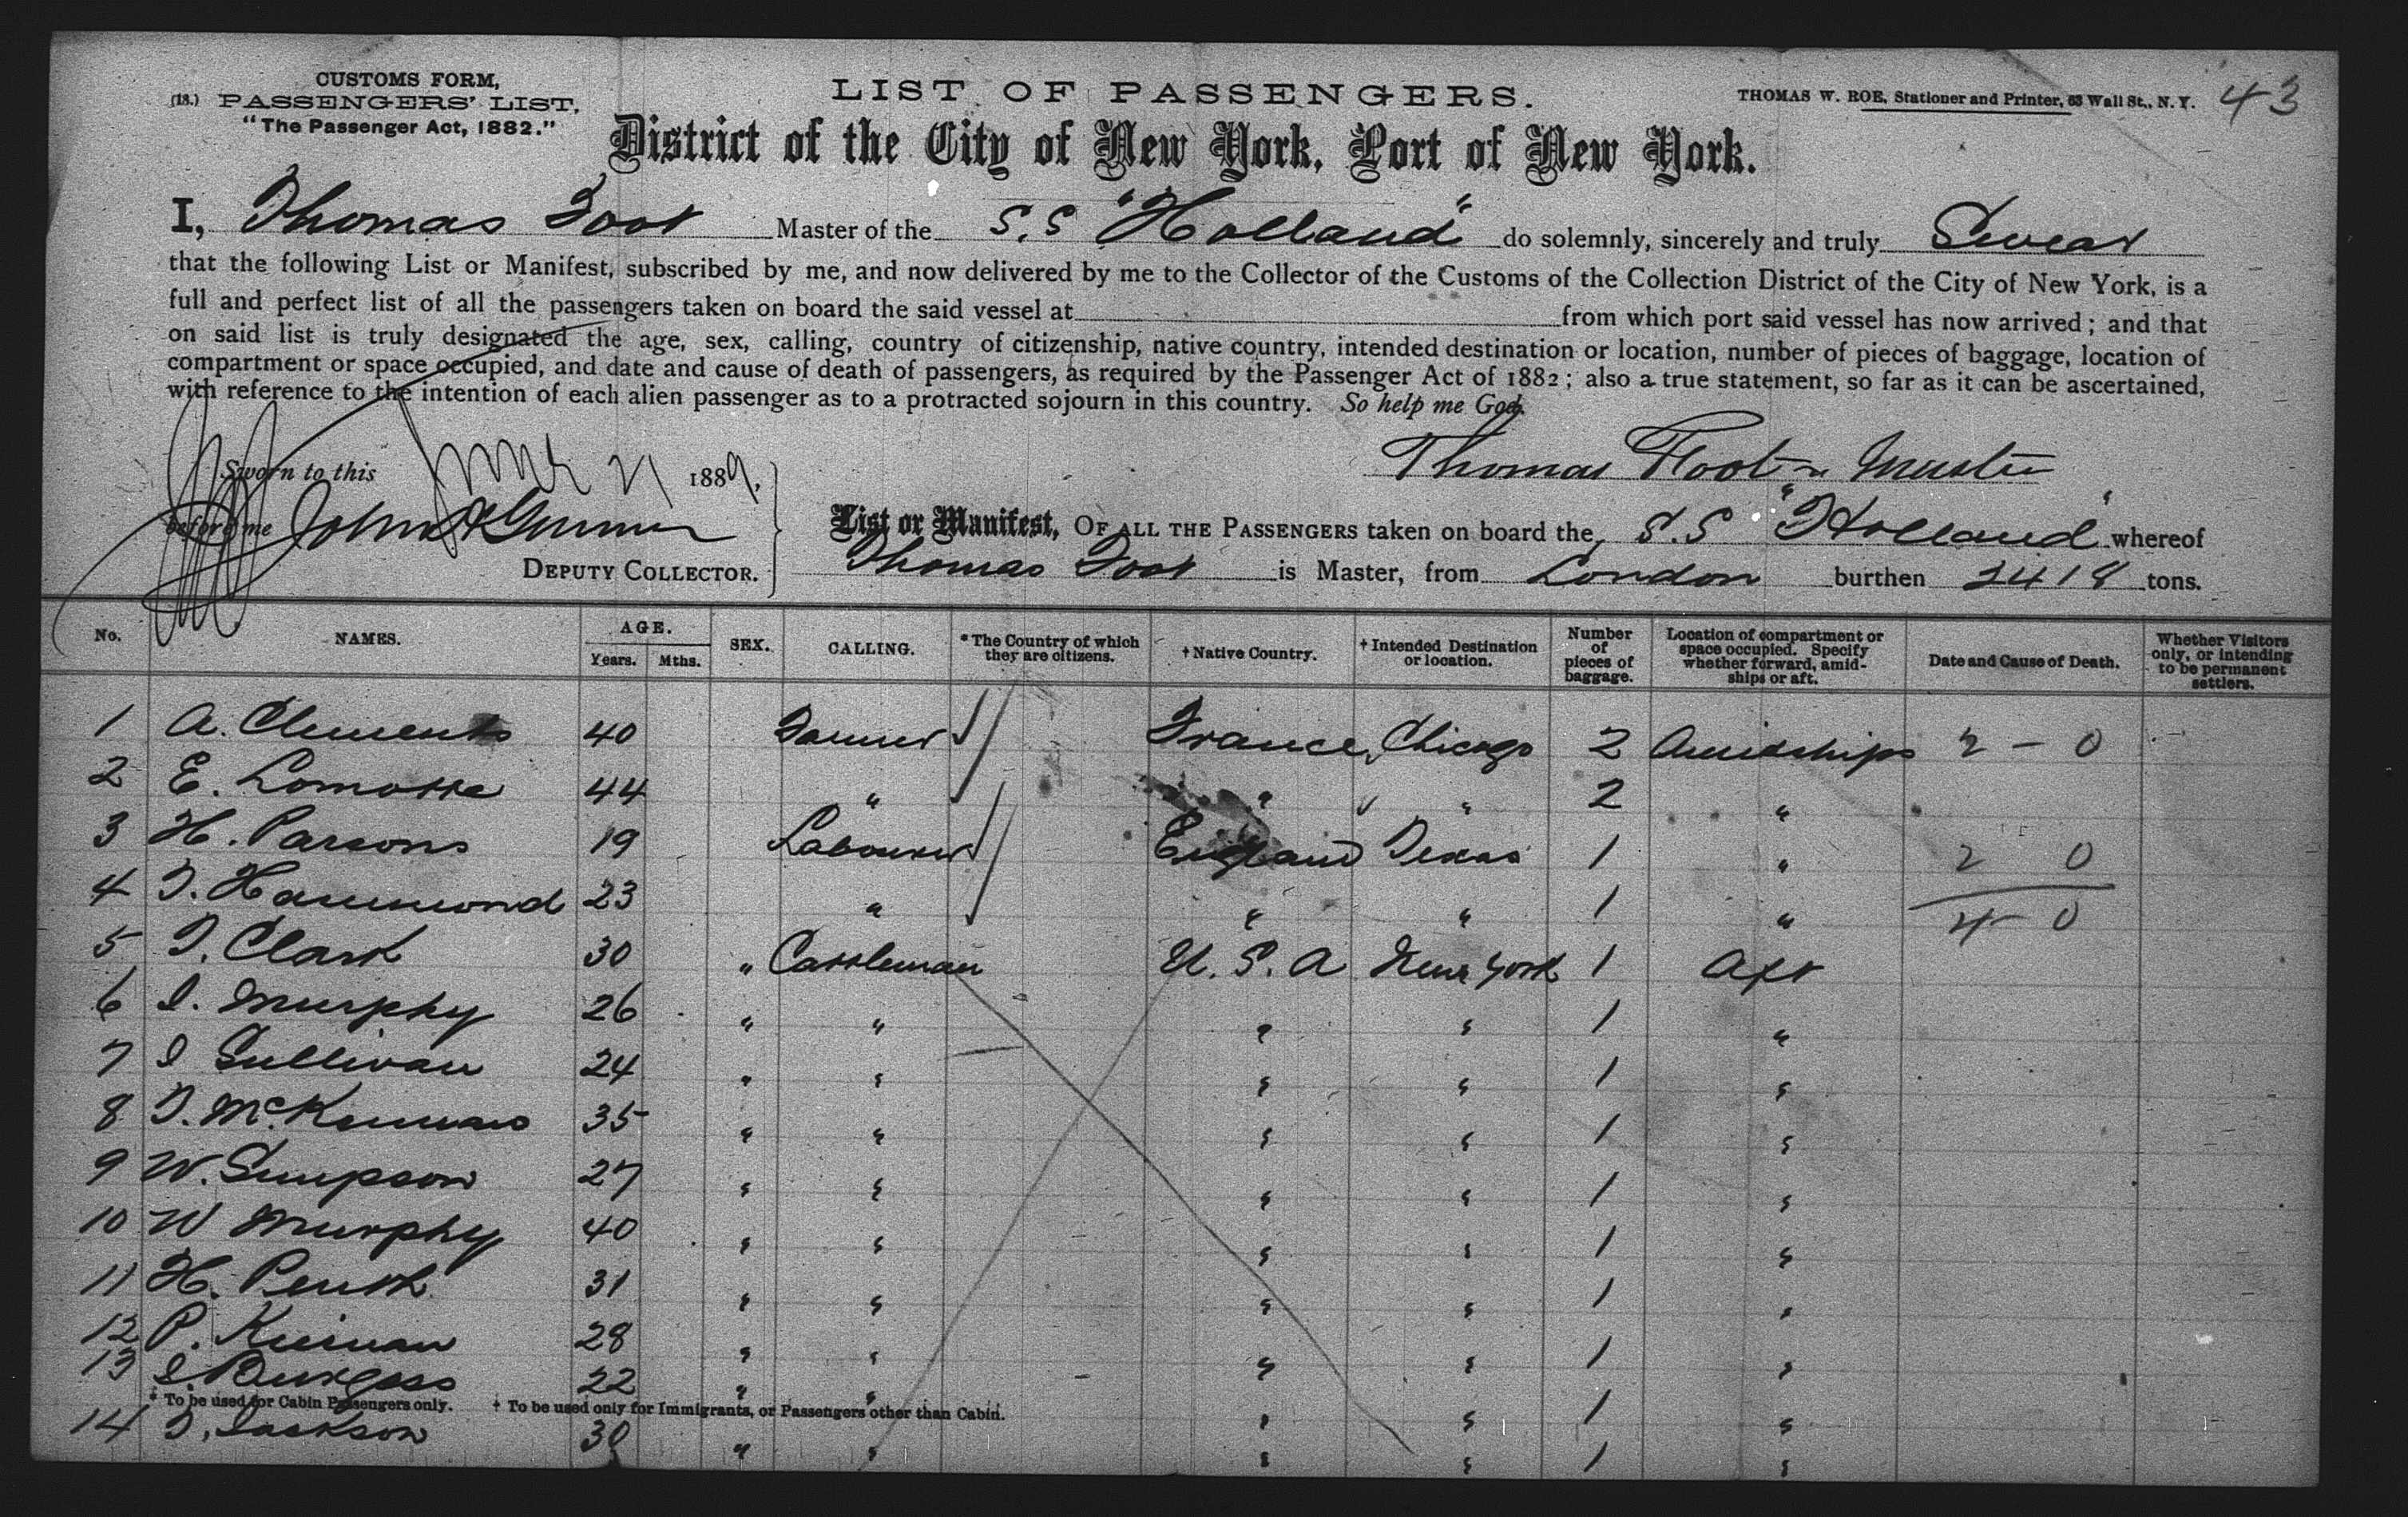 CUSTOMS FORM,
(18.) PASSENGERS' LIST,
"The Passenger Act, 1882."
LIST OF PASSENGERS.
THOMAS W. ROE, Stationer and Printer, 63 Wall St., N. Y. 43
District of the City of New York, Port of New York.
I, Thomas Foot Master of the S.S "Holland" do solemnly, sincerely and truly Swear
that the following List or Manifest, subscribed by me, and now delivered by me to the Collector of the Customs of the Collection District of the City of New York, is a
full and perfect list of all the passengers taken on board the said vessel at from which port said vessel has now arrived; and that
on said list is truly designated the age, sex, calling, country of citizenship, native country, intended destination or location, number of pieces of baggage, location of
compartment or space occupied, and date and cause of death of passengers, as required by the Passenger Act of 1882; also a true statement, so far as it can be ascertained,
with reference to the intention of each alien passenger as to a protracted sojourn in this country. So help me God.
Thomas Foot Master
Sworn to this 21 1889.
before me John
DEPUTY COLLECTOR.
List or Manifest, OF ALL THE PASSENGERS taken on board the S.S "Holland" whereof
Thomas Foot is Master, from London burthen 2418 tons.
No. NAMES. AGE. Years. Mths. SEX. CALLING. * The Country of which they are citizens. † Native Country. † Intended Destination or location. Number of pieces of baggage. Location of compartment or space occupied. Specify whether forward, amidships or aft. Date and Cause of Death. Whether Visitors only, or intending to be permanent settlers.
1 A. Clements 40 Farmer France Chicago 2 Amidships 2 - 0
2 E. Lomotte 44 " " " 2 "
3 H. Parsons 19 Labourer England Texas 1 " 2 0
4 T. Hammond 23 " " " 1 " 4 0
5 T. Clark 30 " Cattleman U. S. A New York 1 Aft
6 I. Murphy 26 " " " " 1 "
7 I Sullivan 24 " " " " 1 "
8 T. 35 " " " " 1 "
9 W. Simpson 27 " " " " 1 "
10 W Murphy 40 " " " " 1 "
11 H. 31 " " " " 1 "
12 P. 28 " " " " 1 "
13 I. Burgess 22 " " " " 1 "
* To be used for Cabin Passengers only. † To be used only for Immigrants, or Passengers other than Cabin.
14 T. Jackson 30 " " " " 1 "